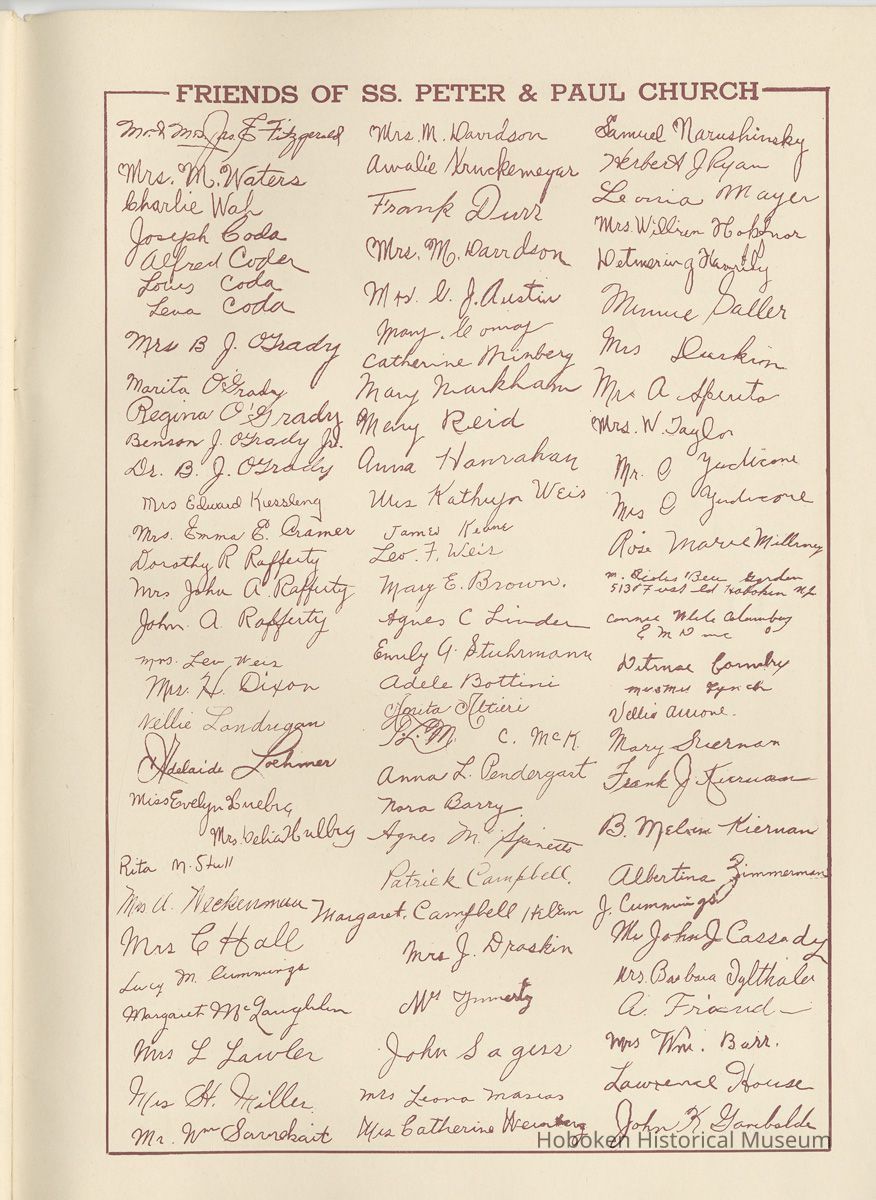 FRIENDS OF SS. PETER & PAUL CHURCH
Mr. & Mrs. Jas. E Fitzgerald
Mrs. M. Waters
Charlie Wah
Joseph Coda
Alfred Coder
Louis Coda
Lena Coda
Mrs B J. O'Grady
Marita O'Grady
Regina O'Grady
Benson J. O'Grady Jr.
Dr. B. J. O'Grady
Mrs Edward Kiessling
Mrs. Emma E. Cramer
Dorothy R Rafferty
Mrs John A. Rafferty
John. A. Rafferty
Mrs. Leo Weis
Mrs. H. Dixon
Nellie Landrigan
Adelaide Loehmer
Miss Evelyn
Mrs. Delia
Rita M. Stull
Mrs A. Neckerman
Mrs C Hall
Lucy M. Cummings
Margaret McLaughlin
Mrs L Lawler
Mrs H. Miller
Mr. Wm
Mrs. M. Davidson
Amalie Kruckemeyer
Frank Durr
Mrs. M. Davidson
Mrs. J. Austin
Mary
Catherine Minberg
Mary Markham
Mary Reid
Anna Hanrahan
Mrs Kathryn Weis
James Keane
Leo. F. Weis
Mary E. Brown.
Agnes C Linder
Emily A. Stuhrmann
Adele Bottini
Anita Altieri
P.L.M. C. McK.
Anna L. Pendergast
Nora Barry
Agnes M. Spinetti
Patrick Campbell.
Margaret. Campbell Helen J. Cummings
Mrs J. Draskin
Mrs
John Sagess
Mrs Leona Masias
Mrs Catherine Weinberg
Samuel Narushinsky
Herbert J Ryan
Leonia Mayer
Mrs. William
Minnie Galler
Mrs Durkin
Mrs A Sperito
Mrs. W. Taylor
Mr. C Yudicone
Mrs C Yudicone
Rose Marie
M. Beer Garden
Hoboken NJ
Lynch
Nellie
Mary Kiernan
Frank J. Kiernan
B. Melvin Kiernan
Albertina Zimmerman
Mr John J Cassady
Mrs. Barbara
A. Friend
Mrs Wm. Barr.
Lawrence House
John K Garibaldi
Hoboken Historical Museum